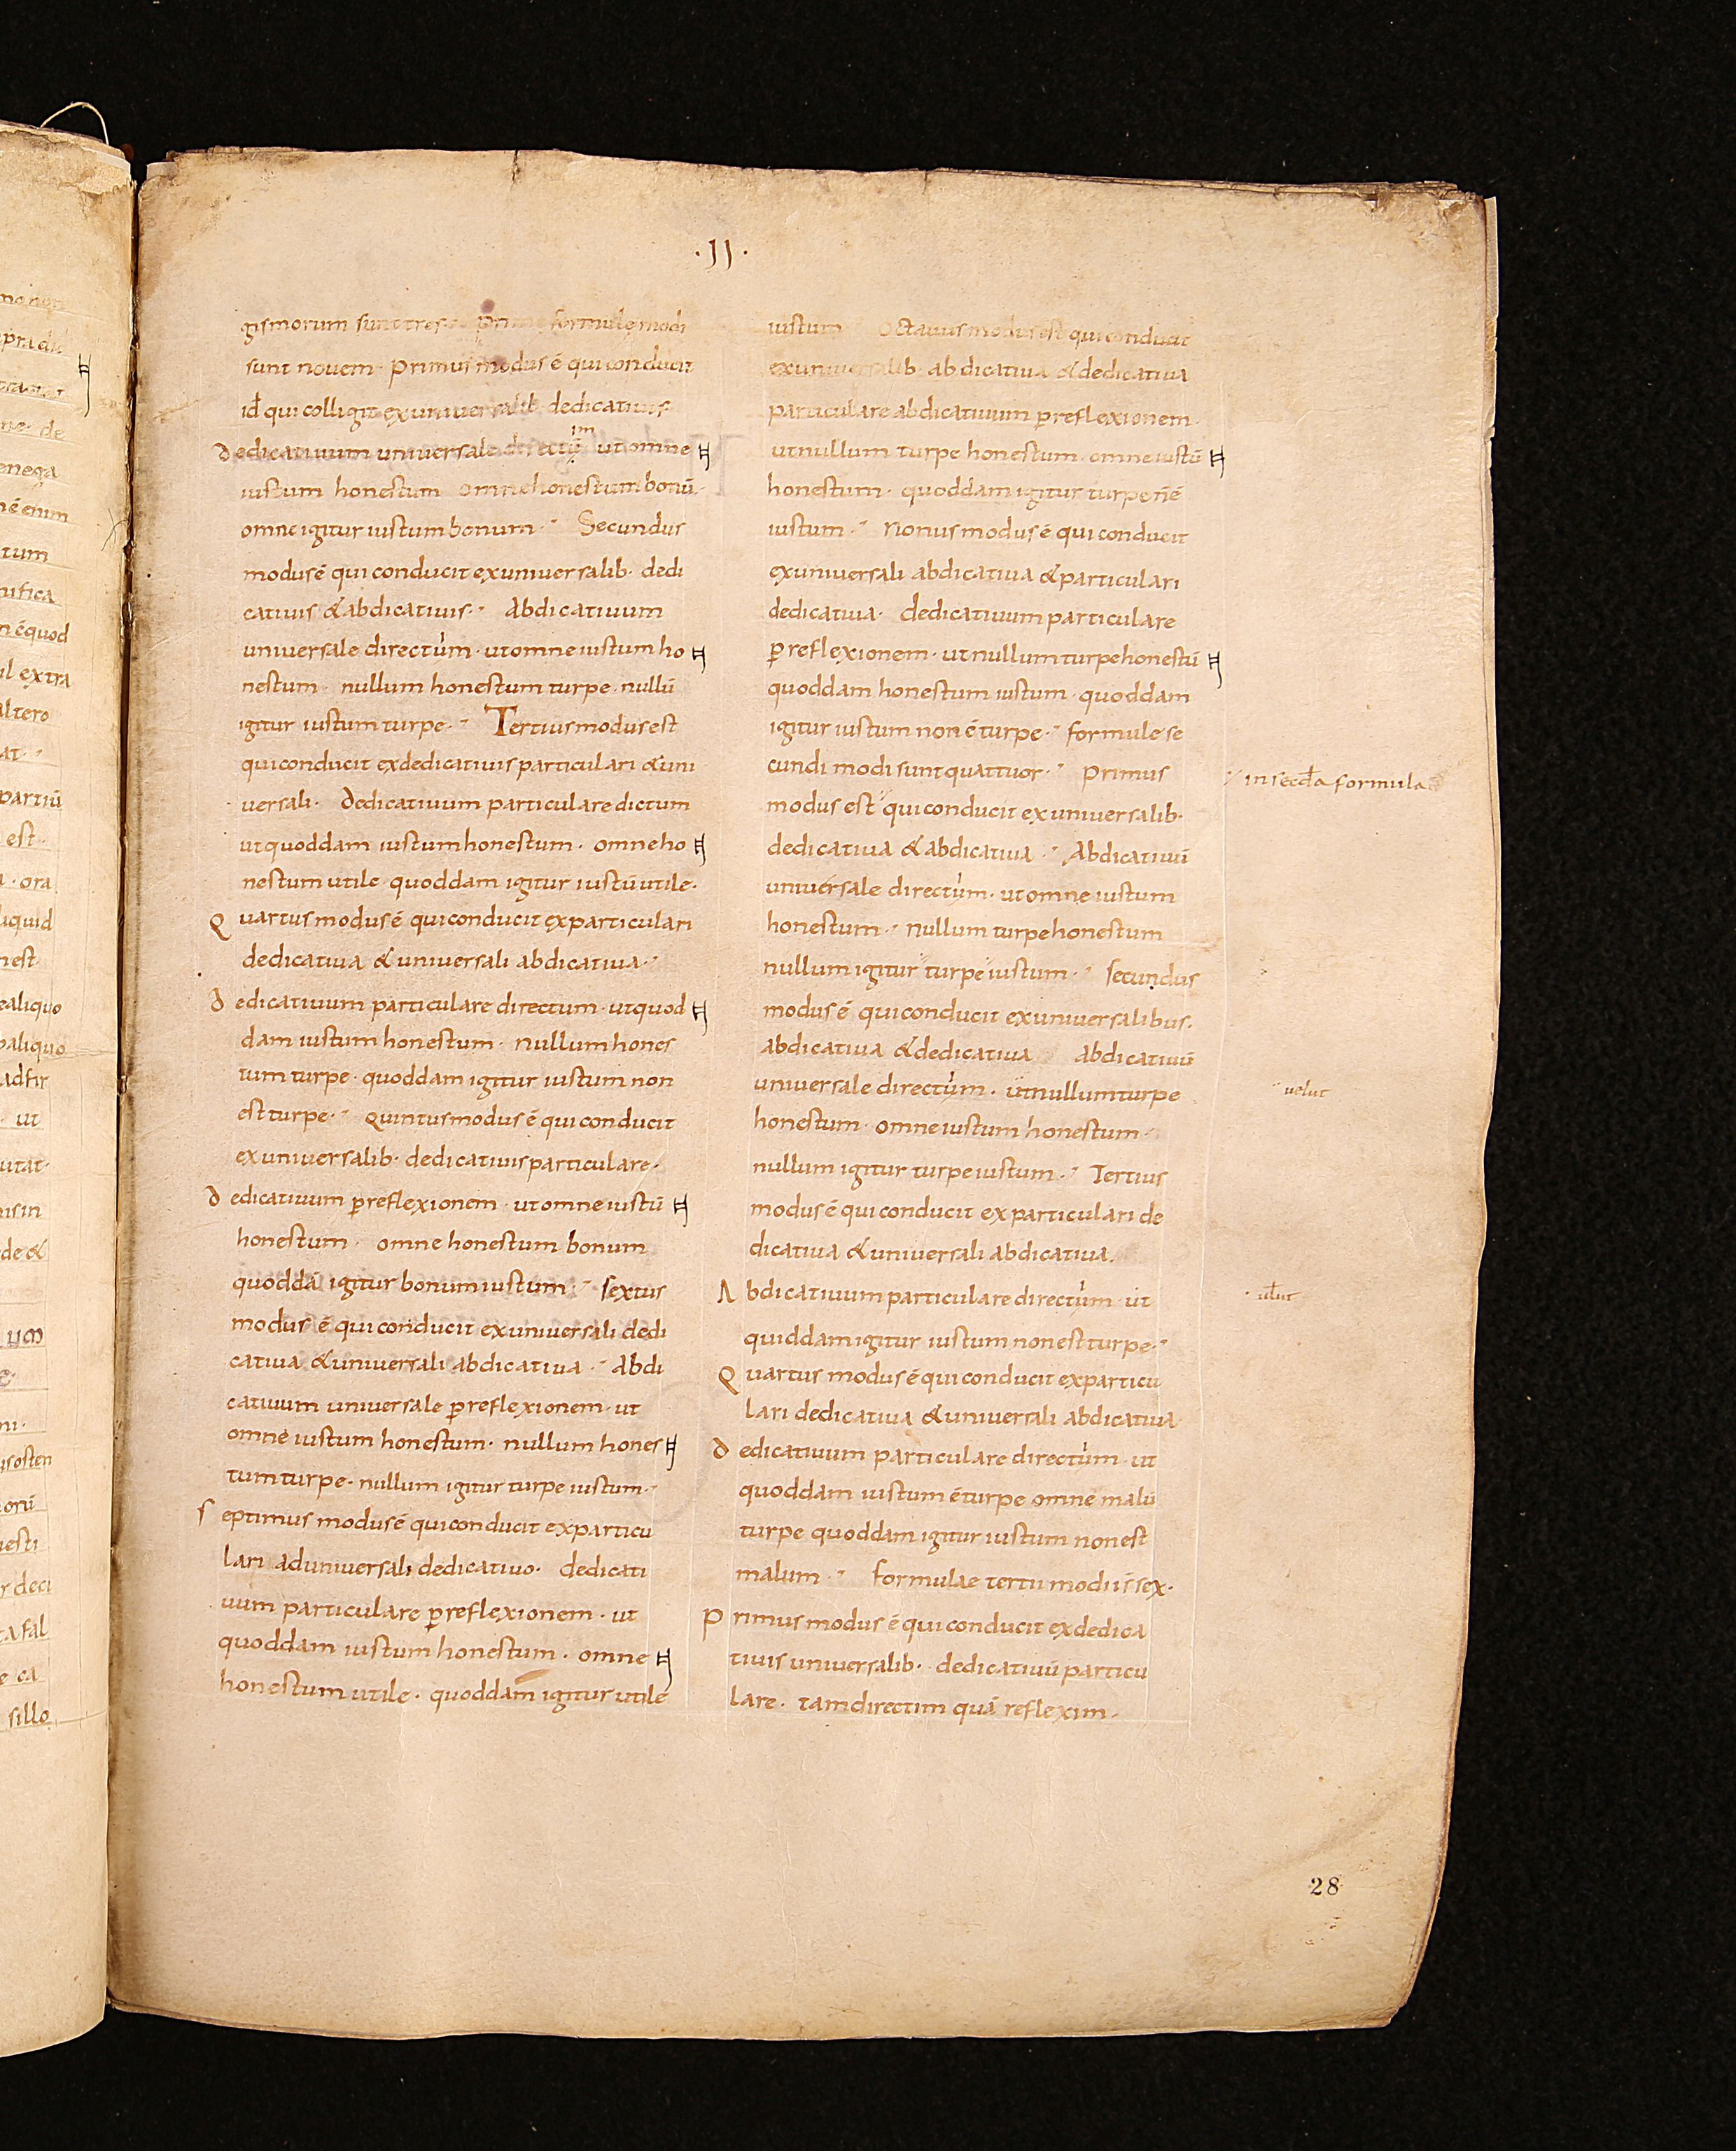 ·II·
gismorum sunt tres prime formule modi
sunt nouem· primus modus ē qui conducit
id̄ qui colligit ex uniuersalib· dedicatiuis
dedicatiuum uniuersale directū im ut omne
iustum honestum omne honestum bonū·
omne igitur iustum bonum· Secundus
modus ē qui conducit ex uniuersalib· dedi
catiuis & abdicatiuis· abdicatiuum
uniuersale directum· ut omne iustum ho
nestum· nullum honestum turpe· nullū
igitur iustum turpe· Tertius modus est
qui conducit ex dedicatiuis particulari & uni
uersali· dedicatiuum particulare dictum
ut quoddam iustum honestum· omne ho
nestum utile quoddam igitur iustū utile·
Quartus modus ē qui conducit ex particulari
dedicatiua & uniuersali abdicatiua·
dedicatiuum particulare directum· ut quod
dam iustum honestum· nullum hones
tum turpe· quoddam igitur iustum non
est turpe· quintus modus ē qui conducit
ex uniuersalib· dedicatiuis particulare·
dedicatiuum p̱ reflexionem· ut omne iustū
honestum· omne honestum bonum
quoddā igitur bonum iustum· sextus
modus ē qui conducit ex uniuersali dedi
catiua & uniuersali abdicatiua· abdi
catiuum uniuersale p̱ reflexionem· ut
omne iustum honestum· nullum hones
tum turpe· nullum igitur turpe iustum·
septimus modus ē qui conducit ex particu
lari ad uniuersali dedicatiuo· dedicati
uum particulare p̱ reflexionem· ut
quoddam iustum honestum· omne
honestum utile· quoddam igitur utile
iustum Octauus modus est qui conducit
ex uniuersalib· abdicatiua & dedicatiua
particulare abdicatiuum p̱ reflexionem·
ut nullum turpe honestum· omne iustū
honestum· quoddam igitur turpe n̄ ē
iustum· Nonus modus ē qui conducit
ex uniuersali abdicatiua & particulari
dedicatiua· dedicatiuum particulare
p̱ reflexionem· ut nullum turpe honestū
quoddam honestum iustum· quoddam
igitur iustum non ē turpe· formule se
cundi modi sunt quattuor· primus
modus est qui conducit ex uniuersalib·
dedicatiua & abdicatiua· Abdicatiuū
uniuersale directum· ut omne iustum
honestum· nullum turpe honestum
nullum igitur turpe iustum· secundus
modus ē qui conducit ex uniuersalibus·
abdicatiua & dedicatiua abdicatiuū
uniuersale directum· ut nullum turpe
honestum· omne iustum honestum·
nullum igitur turpe iustum· Tertius
modus ē qui conducit ex particulari de
dicatiua & uniuersali abdicatiua·
Abdicatiuum particulare directum ut
quiddam igitur iustum non est turpe·
Quartus modus ē qui conducit ex particu
lari dedicatiua & uniuersali abdicatiua
dedicatiuum particulare directum ut
quoddam iustum ē turpe omne malū
turpe quoddam igitur iustum non est
malum· formulae tertii modi s̄ sex·
Primus modus ē qui conducit ex dedica
tiuis uniuersalib· dedicatiuū particu
lare· tam directim quā reflexim·
in secd̄a formula
uelut
ul̄ut
28